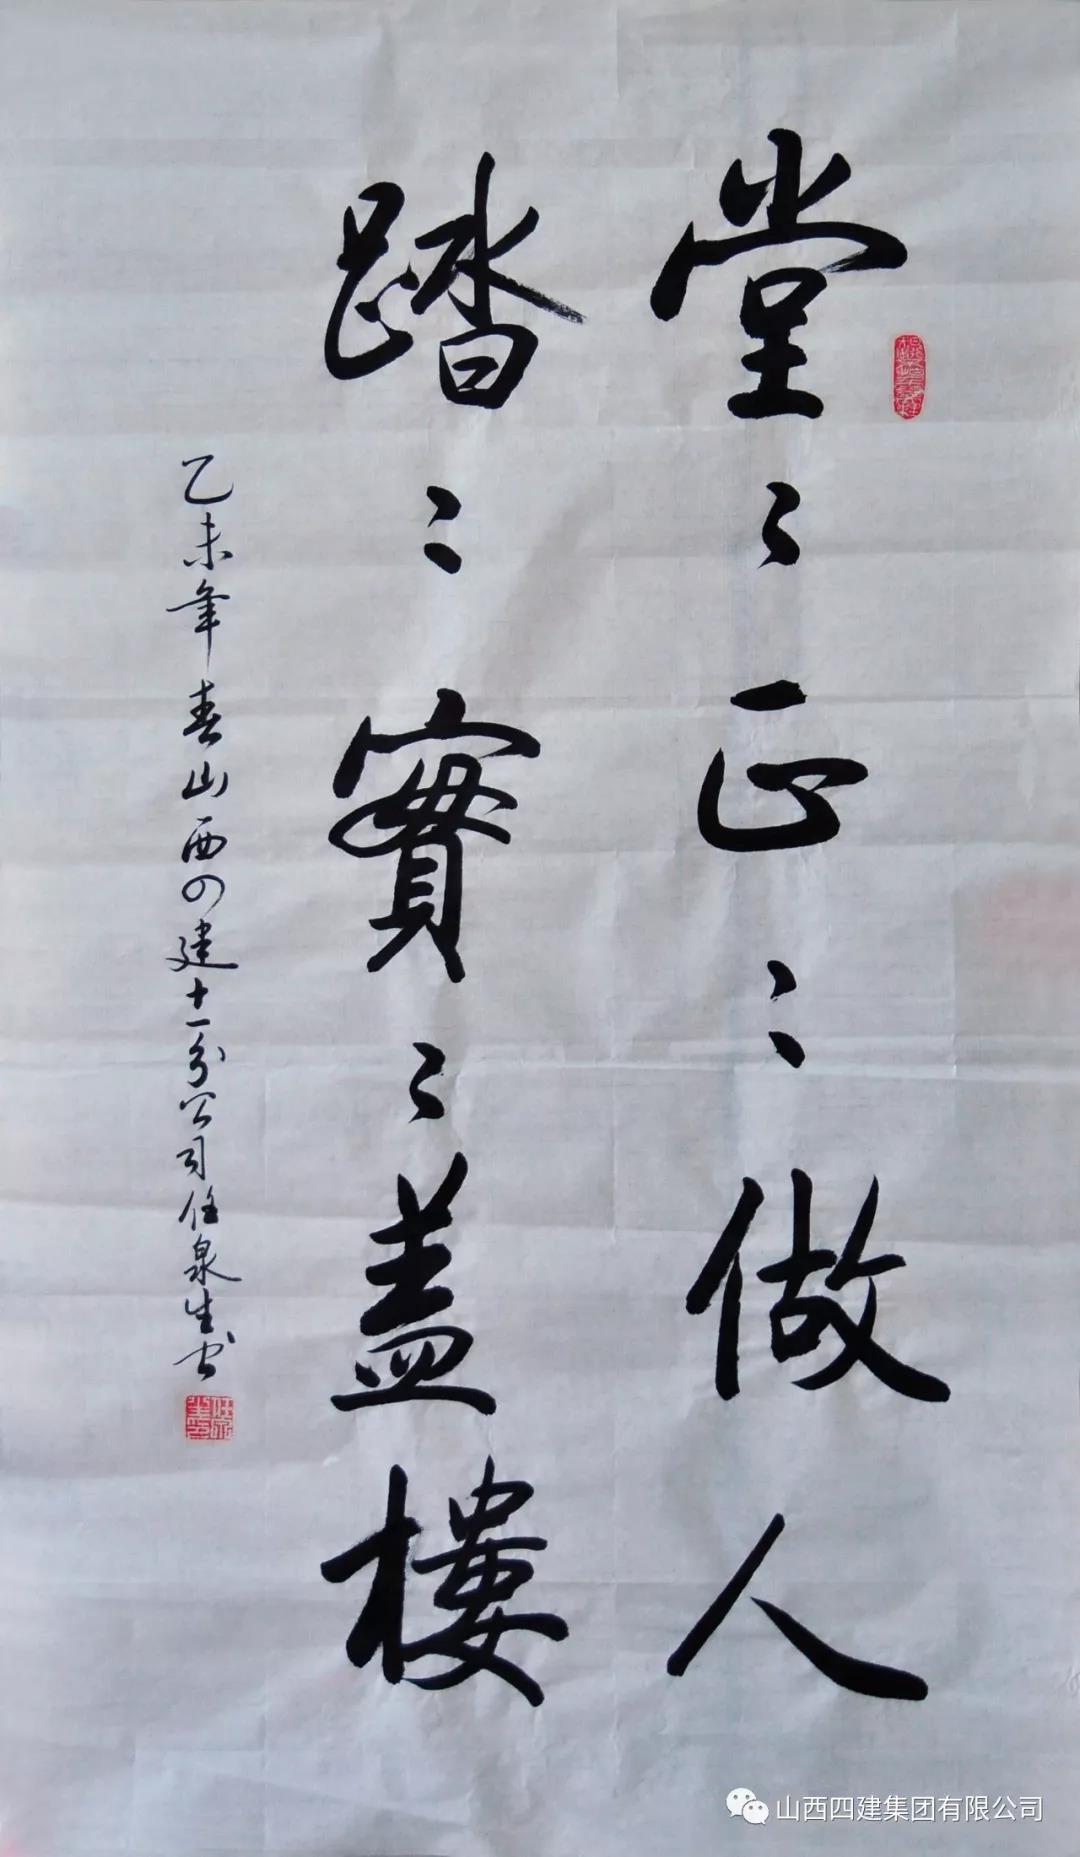 堂〻正〻做人
踏〻實〻盖樓
乙未年春山西四建十一分公司任泉生书
山西四建集团有限公司